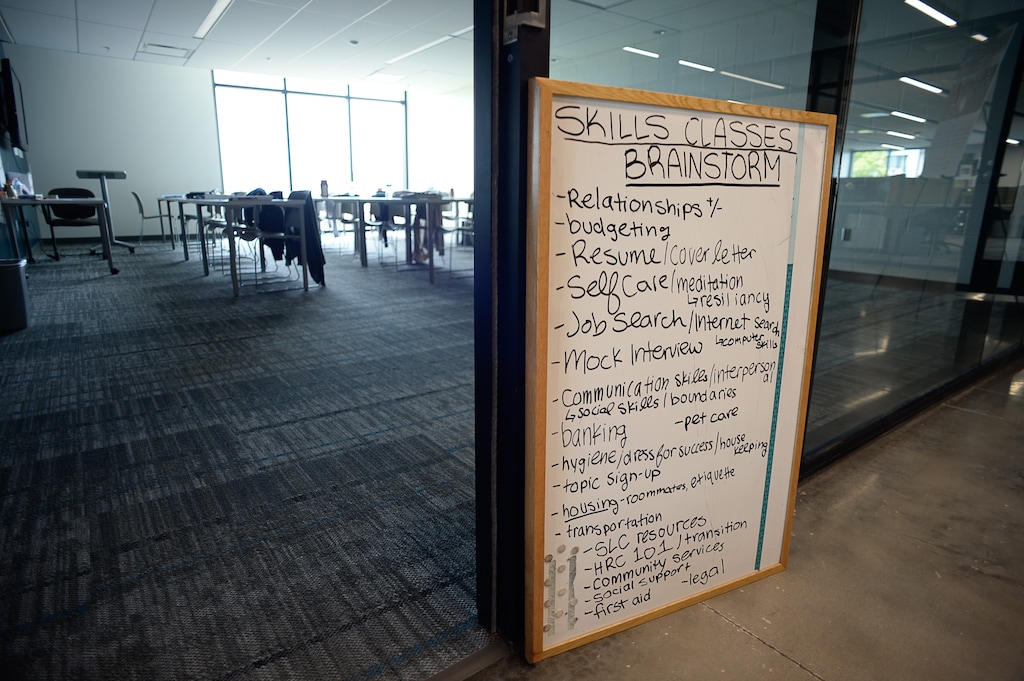 SKILLS CLASSES
BRAINSTORM
-Relationships +/-
-budgeting
-Resume/Cover letter
-Self Care/meditation
↳resiliancy
-Job Search/Internet search
↳computer skills
-Mock Interview
-Communication skills/interpersonal
↳social skills/boundaries
-banking -pet care
-hygiene/dress for success/house keeping
-topic sign-up
-housing-roommates, etiquette
-transportation
-SLC resources
-HRC 101/transition
-community services
-social support
-legal
-first aid